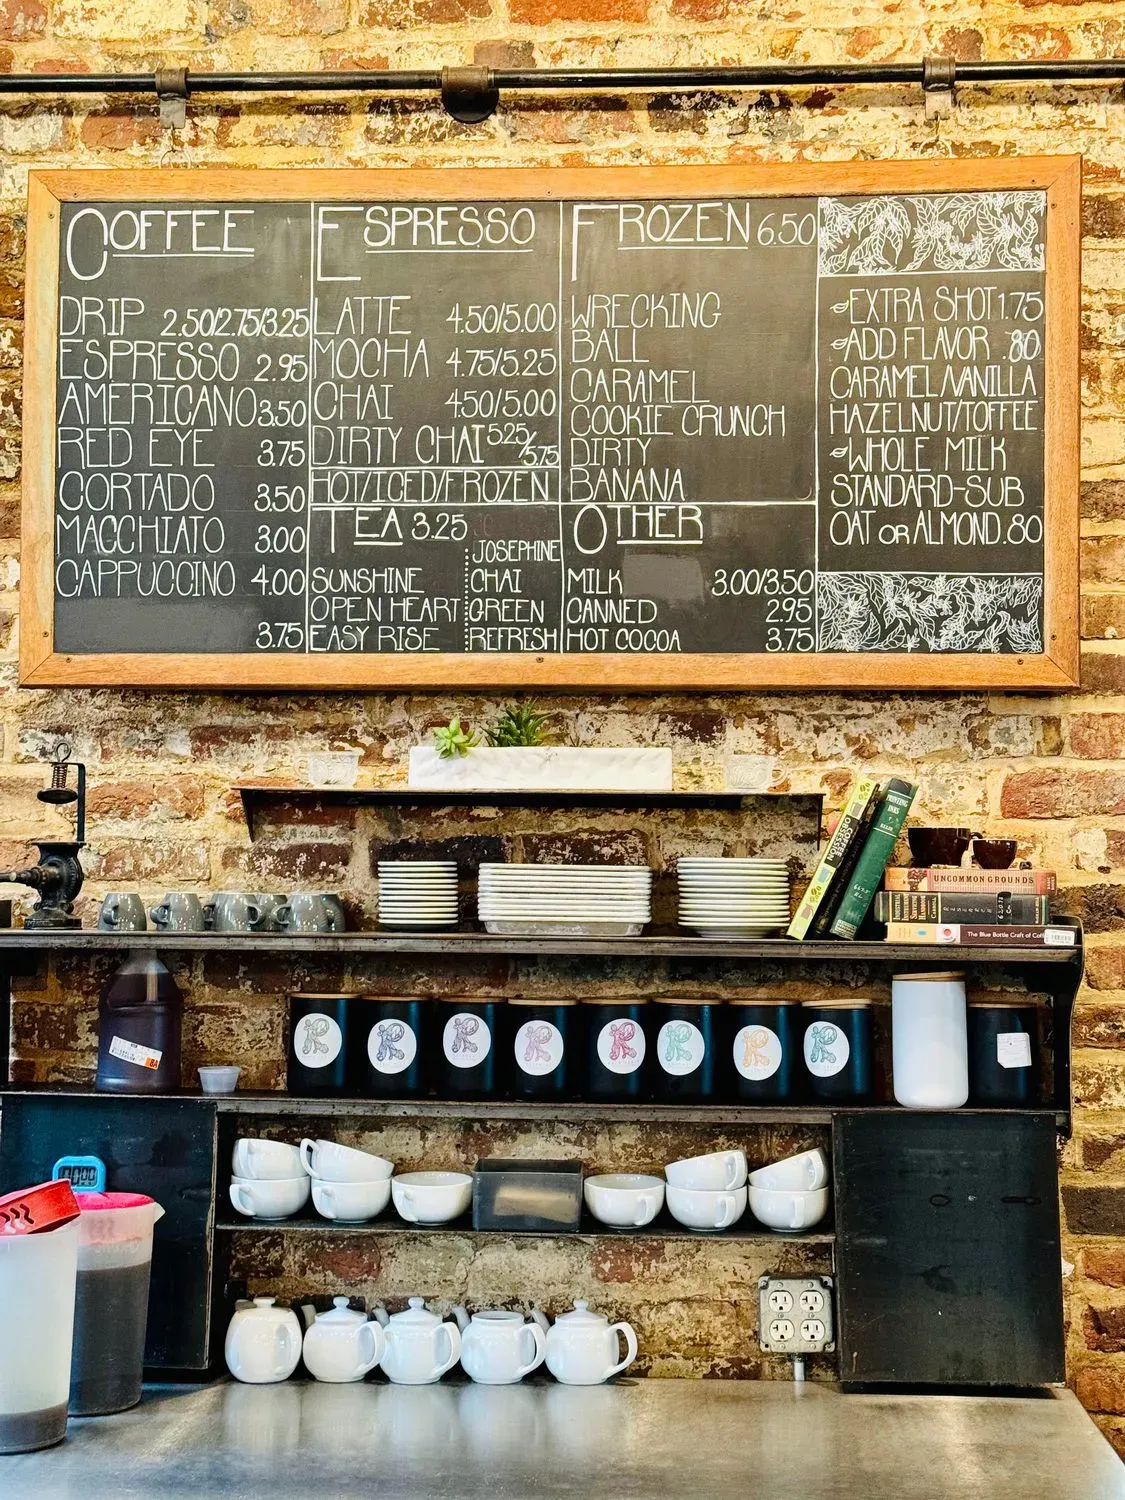 COFFEE
DRIP 2.50/2.75/3.25
ESPRESSO 2.95
AMERICANO 3.50
RED EYE 3.75
CORTADO 3.50
MACCHIATO 3.00
CAPPUCCINO 4.00
3.75
ESPRESSO
LATTE 4.50/5.00
MOCHA 4.75/5.25
CHAI 4.50/5.00
DIRTY CHAI 5.25/5.75
HOT/ICED/FROZEN
TEA 3.25
SUNSHINE
OPEN HEART
EASY RISE
JOSEPHINE
CHAI
GREEN
REFRESH
FROZEN 6.50
WRECKING
BALL
CARAMEL
COOKIE CRUNCH
DIRTY
BANANA
OTHER
MILK 3.00/3.50
CANNED 2.95
HOT COCOA 3.75
EXTRA SHOT 1.75
ADD FLAVOR .80
CARAMEL/VANILLA
HAZELNUT/TOFFEE
WHOLE MILK
STANDARD-SUB
OAT OR ALMOND .80
PRINTING
INKS
UNCOMMON GROUNDS
The Blue Bottle Craft of
R
R
R
R
R
R
R
R